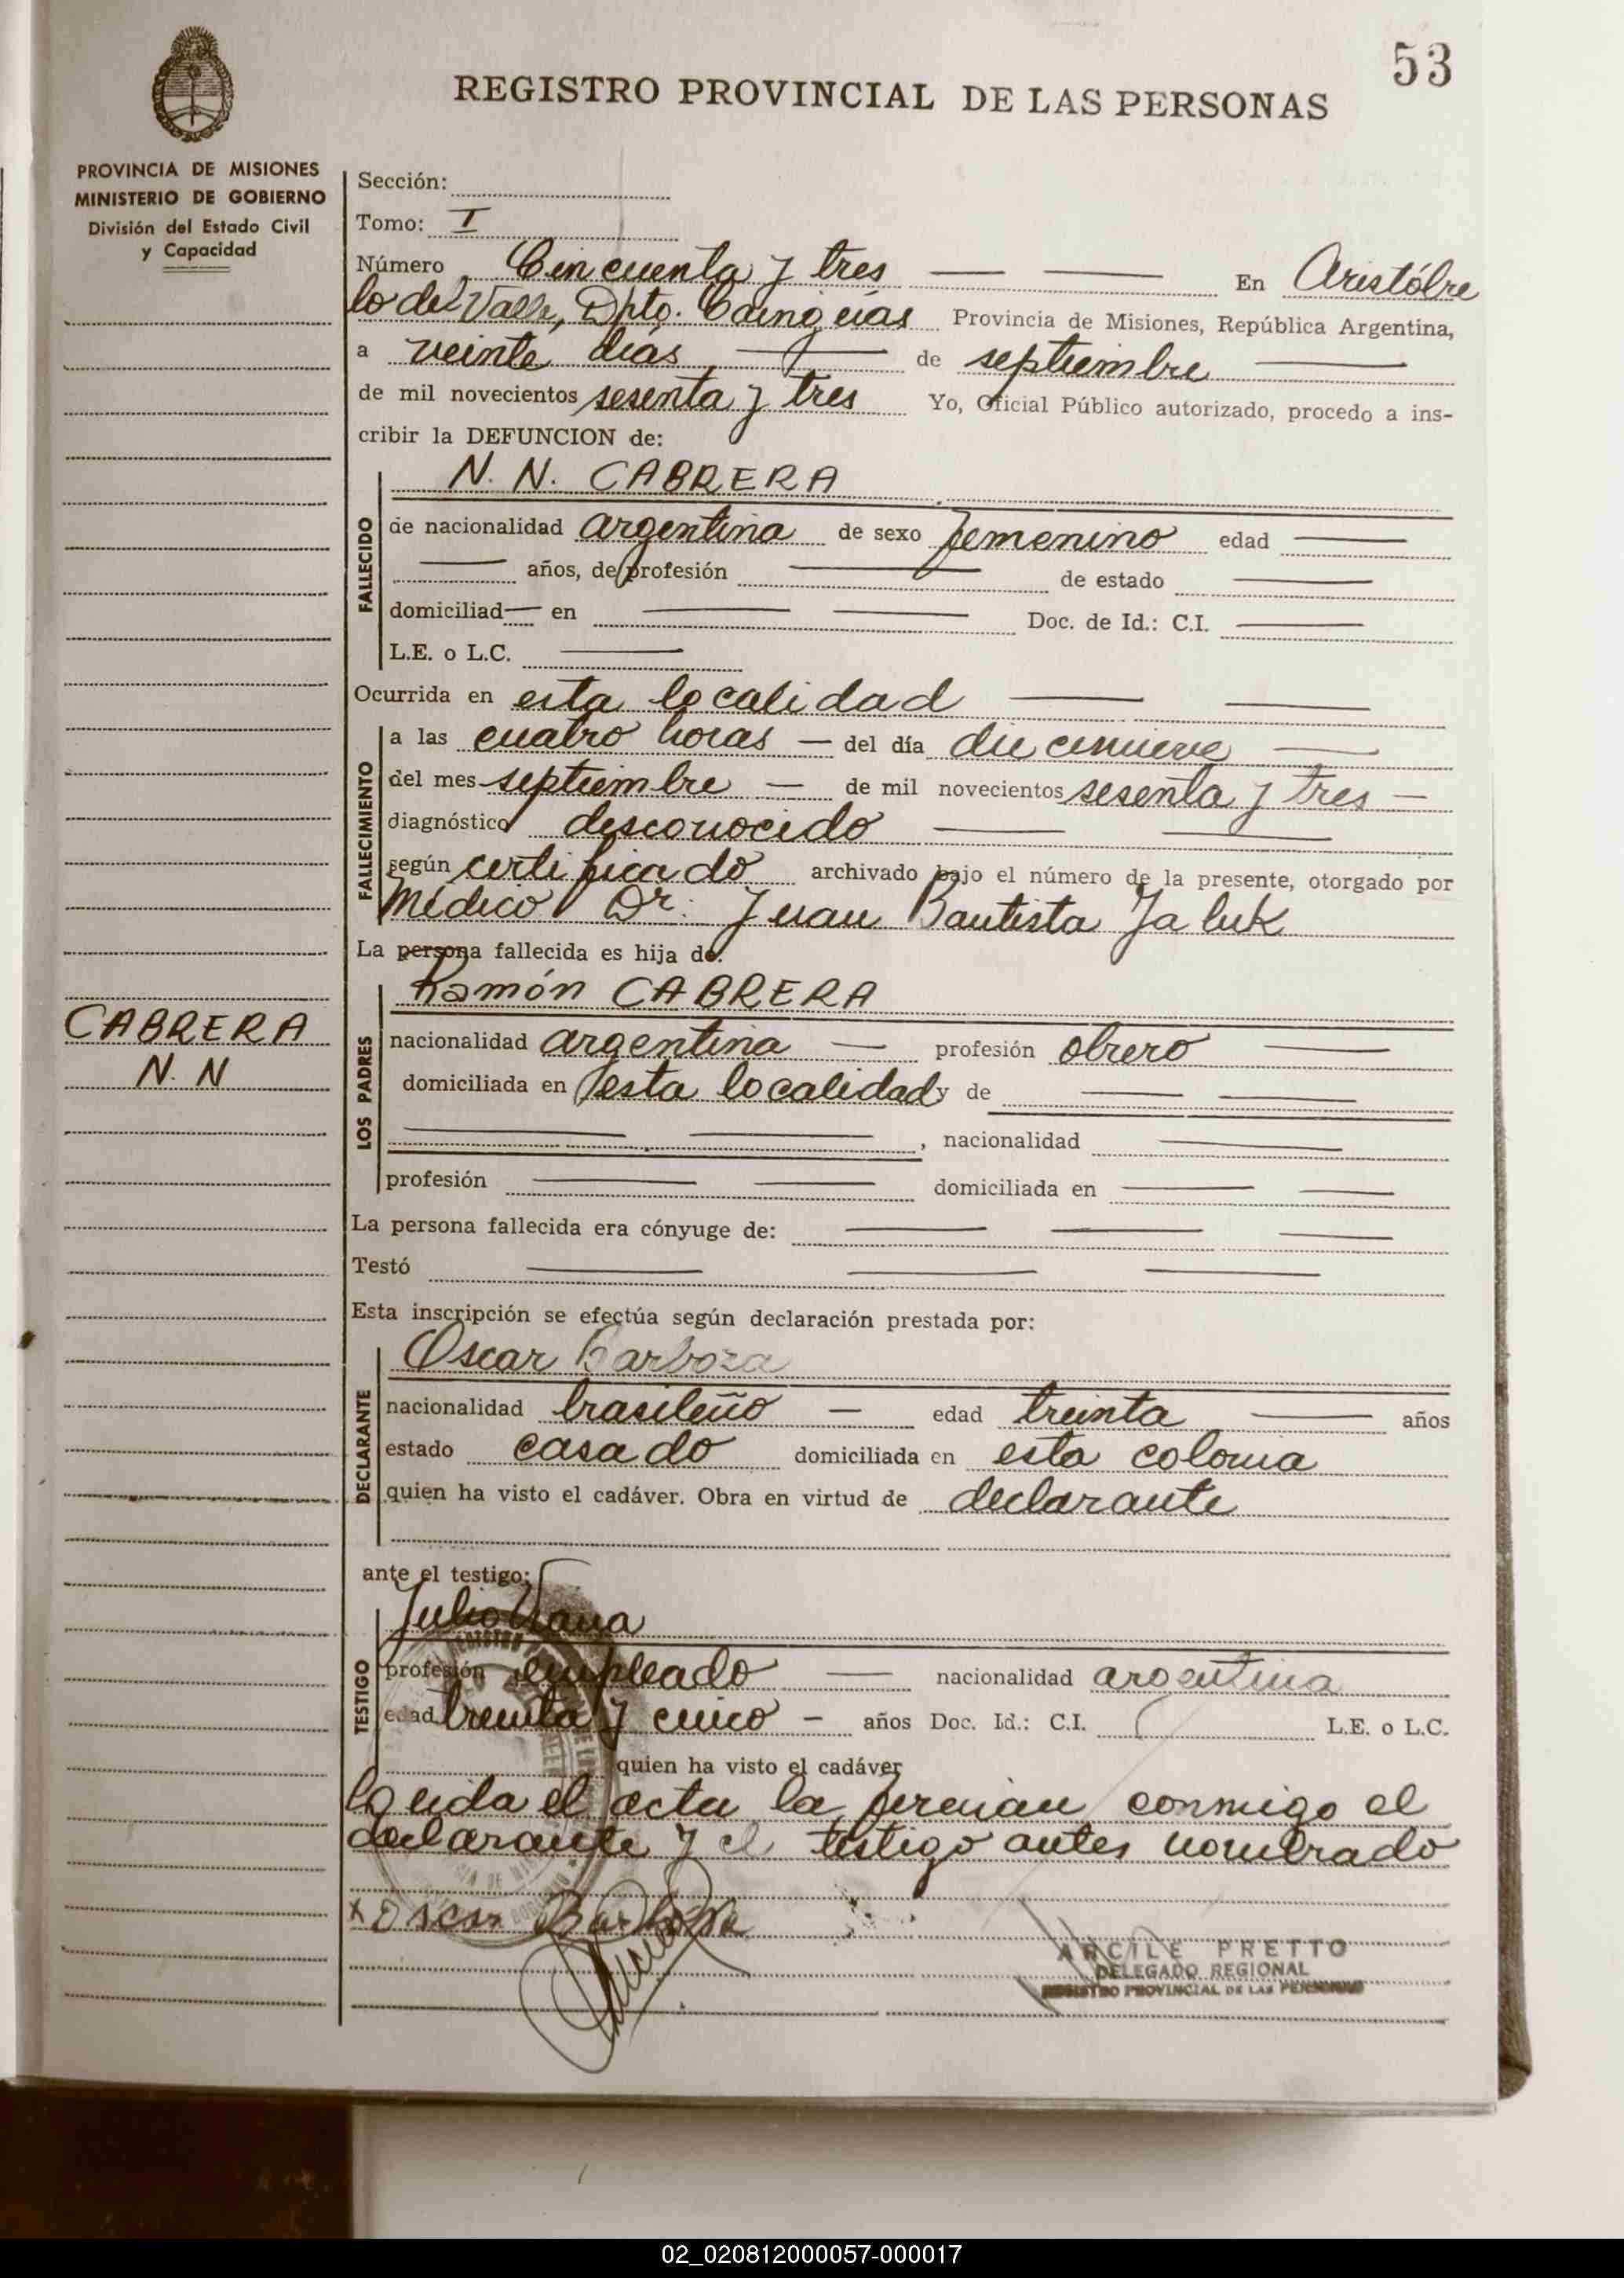 53
REGISTRO PROVINCIAL DE LAS PERSONAS
PROVINCIA DE MISIONES
MINISTERIO DE GOBIERNO
División del Estado Civil
y Capacidad
Sección:
Tomo: I
Número Cincuenta y tres En Aristóbre
lo del Valle, Dpto. Cainguás Provincia de Misiones, República Argentina,
a veinte días de septiembre
de mil novecientos sesenta y tres Yo, Oficial Público autorizado, procedo a ins-
cribir la DEFUNCION de:
N. N. CABRERA
FALLECIDO
de nacionalidad argentina de sexo femenino edad
años, de profesión de estado
domiciliad en Doc. de Id.: C.I.
L.E. o L.C.
Ocurrida en esta localidad
FALLECIMIENTO
a las cuatro horas — del día diecinueve
del mes septiembre — de mil novecientos sesenta y tres —
diagnóstico desconocido
según certificado archivado bajo el número de la presente, otorgado por
Médico Dr: Juan Bautista Jaluk
La persona fallecida es hija de:
LOS PADRES
Ramón CABRERA
nacionalidad argentina — profesión obrero
domiciliada en esta localidad y de
, nacionalidad
profesión domiciliada en
CABRERA
N. N
La persona fallecida era cónyuge de:
Testó
Esta inscripción se efectúa según declaración prestada por:
DECLARANTE
Oscar Barboza
nacionalidad brasileño — edad treinta años
estado casado domiciliada en esta colonia
quien ha visto el cadáver. Obra en virtud de declarante
ante el testigo:
TESTIGO
Julio
profesión empleado nacionalidad argentina
edad treinta y cinco — años Doc. Id.: C.I. L.E. o L.C.
quien ha visto el cadáver
Leída el acta la firman conmigo el
declarante y el testigo antes nombrado
x Oscar Barboza
ARCILE PRETTO
DELEGADO REGIONAL
REGISTRO PROVINCIAL DE LAS PERSONAS
02_020812000057-000017